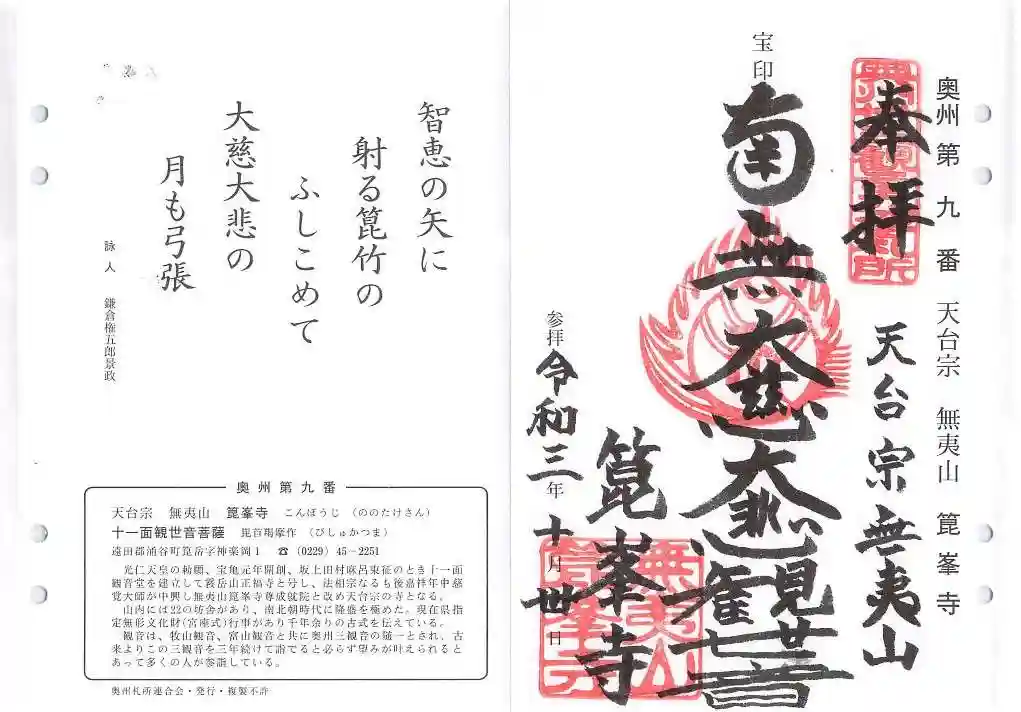 奥州第九番　天台宗　無夷山　箟峯寺
奉拝
天台宗無夷山
宝印
南無大慈大悲
箟峯寺
参拝令和三年十月卅日
智恵の矢に
射る箟竹の
ふしこめて
大慈大悲の
月も弓張
詠人　鎌倉権五郎景政
奥州第九番
天台宗　無夷山　箟峯寺　こんぽうじ（ののたけさん）
十一面観世音菩薩　毘首羯摩作（びしゅかつま）
遠田郡涌谷町箟岳字神楽岡1　☎（0229）45－2251
光仁天皇の勅願、宝亀元年開創、坂上田村麻呂東征のとき十一面
観音堂を建立して霧岳山正福寺と号し、法相宗なるも後嘉祥年中慈
覚大師が中興し無夷山箟峯寺尊成就院と改め天台宗の寺となる。
山内には22の坊舎があり、南北朝時代に隆盛を極めた。現在県指
定無形文化財(宮座式)行事があり千年余りの古式を伝えている。
観音は、牧山観音、富山観音と共に奥州三観音の随一とされ、古
来よりこの三観音を三年続けて詣でると必らず望みが叶えられると
あって多くの人が参詣している。
奥州札所連合会・発行・複製不許